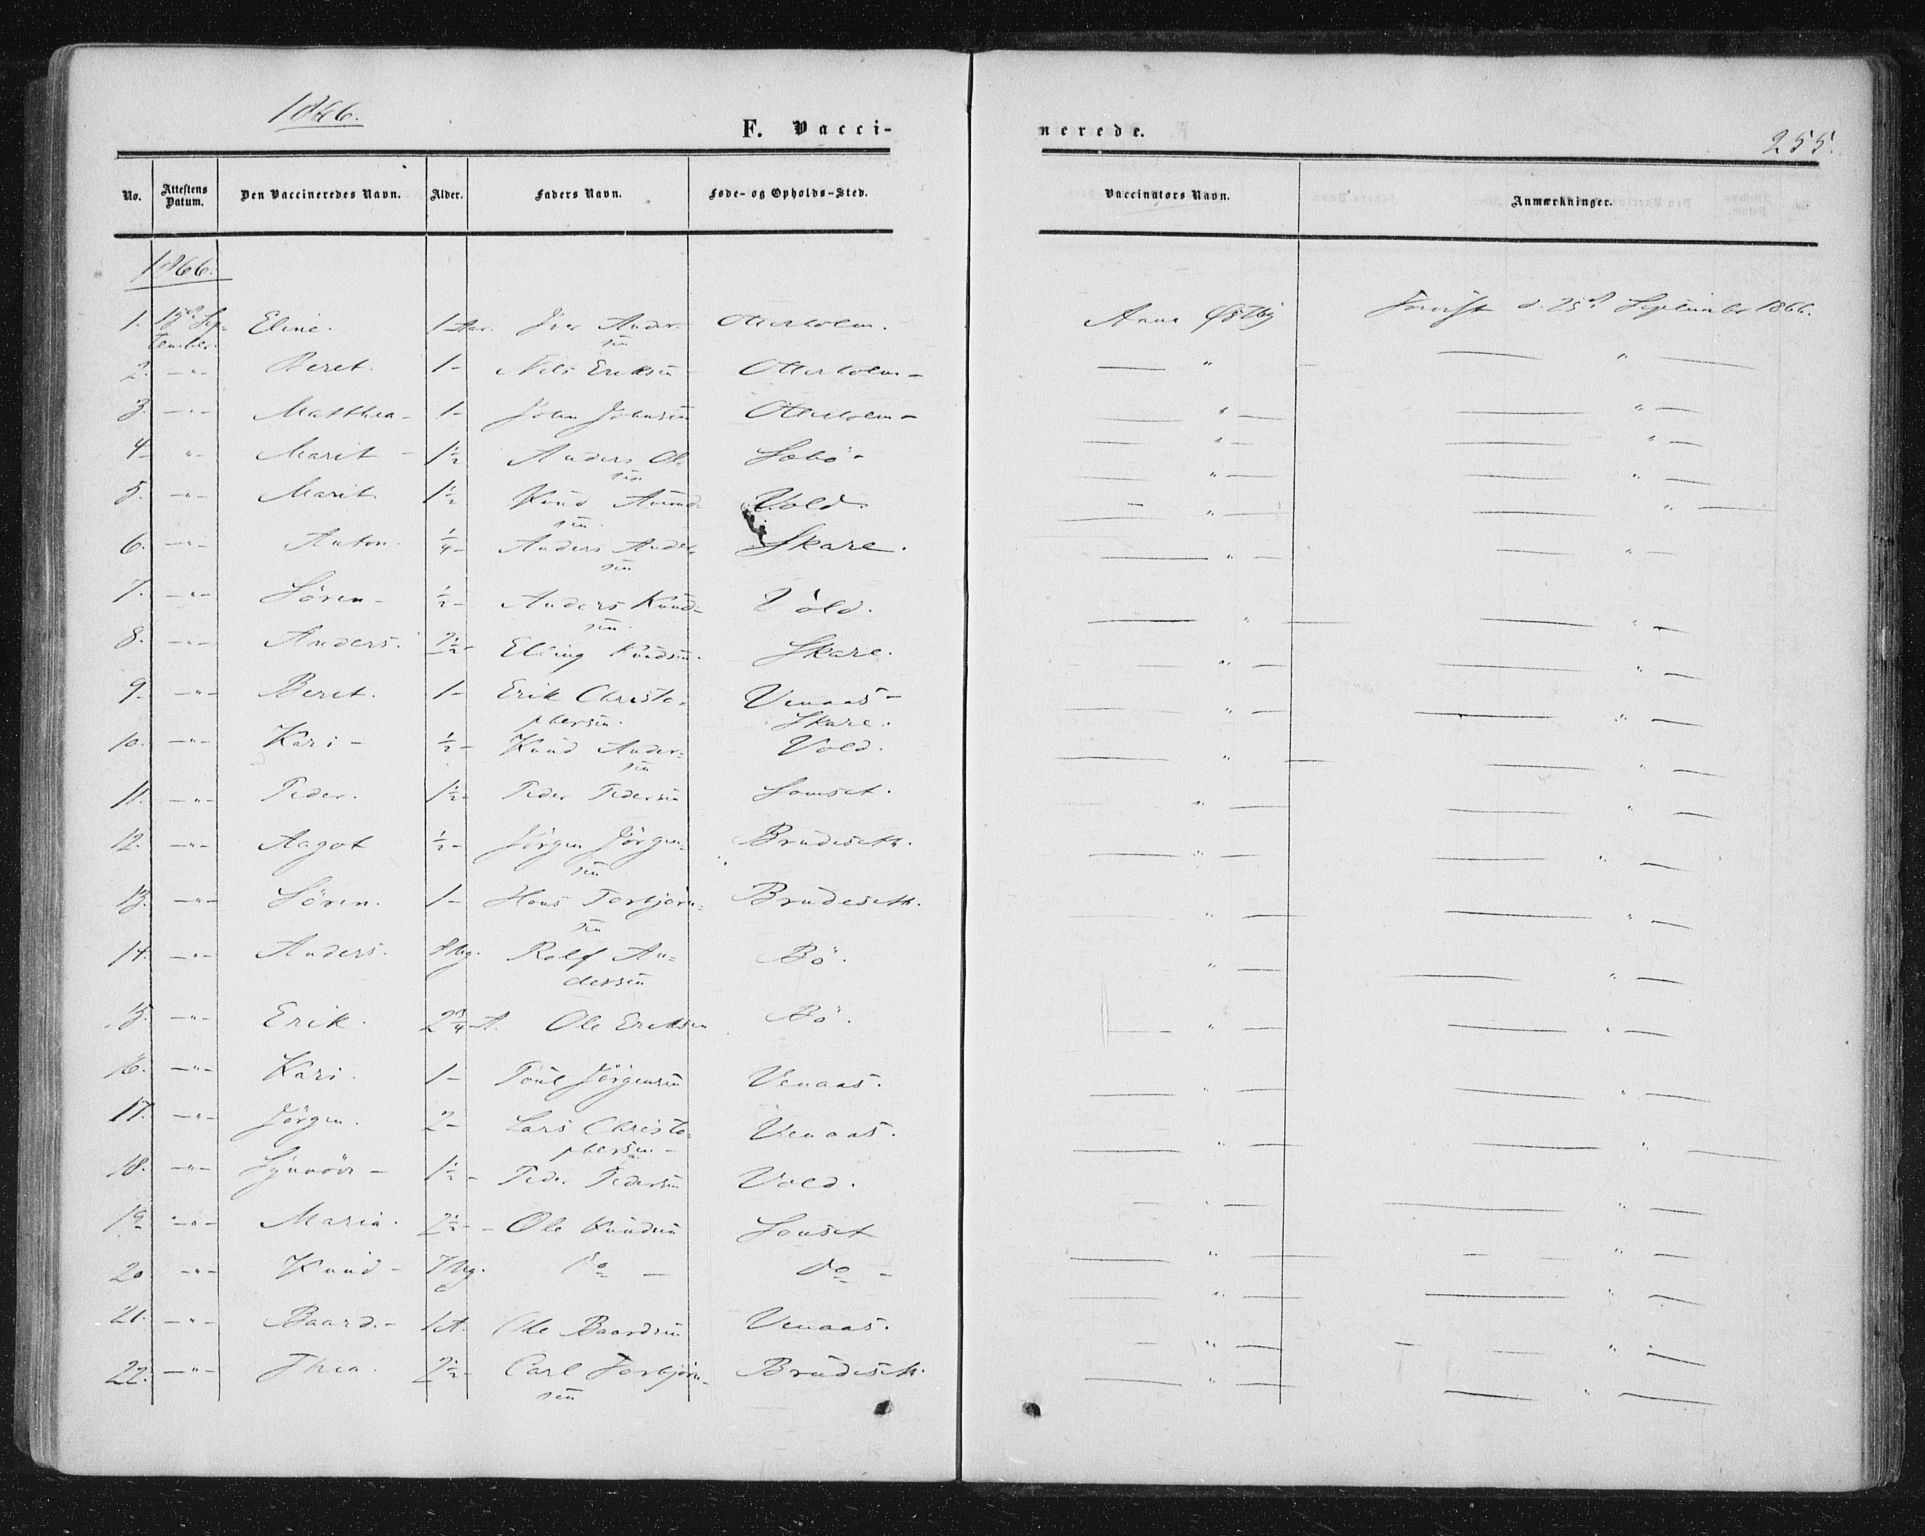 1866.
F. Vacci-
nerede.
255.
No. Attestens Datum. Den Vaccineredes Navn. Alder. Faders Navn. Føde- og Opholds-Sted. Vaccinators Navn. Anmærkninger.
1866.
1. 15de September. Eline. 1 Aar. Iver Andersen Otterholm. Anna Østby d. 25de September 1866.
2. -"- Beret. 1 - Nils Eriksen Otterholm - " "
3. -"- Matthea - 1 - John Johnsen Otterholm - " "
4. " Marit - 1½ Anders Olsen Sæbö - " "
5. -"- Marit 1½ Knud Amundsen. Vold. " "
6. -"- Anton. ¼ - Anders Andersen Skare. " "
7. -"- Sören - ½ - Anders Knudsen. Vold. " "
8. -"- Anders. 2½ - Elling Knudsen. Skare. " "
9. -"- Beret. 1 - Erik Christophersen. Venaas - Skare. " "
10. -"- Kari - ½ - Knud Andersen Vold. " "
11. -"- Peder. 1½ - Peder Pedersen Sonset. " "
12. -"- Aagot ½ - Jörgen Jörgensen Brudeseth. " "
13. -"- Sören. 1 - Hans Torbjörnsen Brudeseth. " "
14. -"- Anders. 8 Ug. Rolf Andersen Bö. " "
15. -"- Erik. 2¾ A. Ole Eriksen Bö. " "
16. -"- Kari. 1 - Poul Jörgensen Venaas. " "
17. -"- Jörgen. 2 - Lars Christophersen - Venaas. " "
18. -"- Synnöve - 1½ - Peder Pedersen Vold. " "
19. -"- Maria. 2½ - Ole Knudsen Sonset " "
20. -"- Knud - 7 Ug. do - do - " "
21. -"- Baard. - 1 A. Ole Baardsen Venaas. " "
22. -"- Thea. 2½ - Carl Torbjörnsen Brudeseth. " "